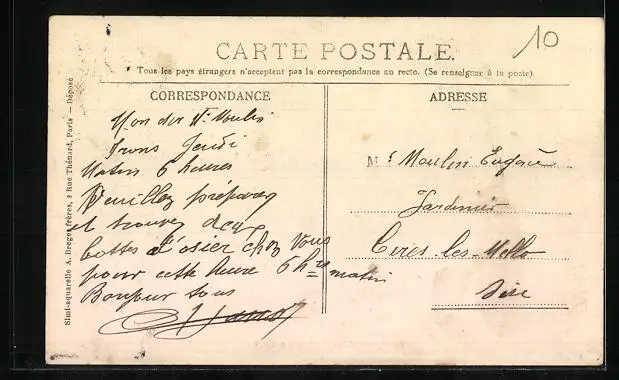 10
CARTE POSTALE.
Tous les pays étrangers n'acceptent pas la correspondance au recto. (Se renseigner à la poste).
CORRESPONDANCE
Mon der Mr Moulin
Irons Jeudi
Matin 6 heures
Veuillez préparer
et trouver deux
bottes d'osier chez Vous
pour cette heure 6 hres matin
Bonjour tous
ADRESSE
Mr Moulin Eugène
Jardinier
Cires-les-Mello
Oise
Simi-aquarelle A. Breger frères, 9 Rue Thénard, Paris — Déposé